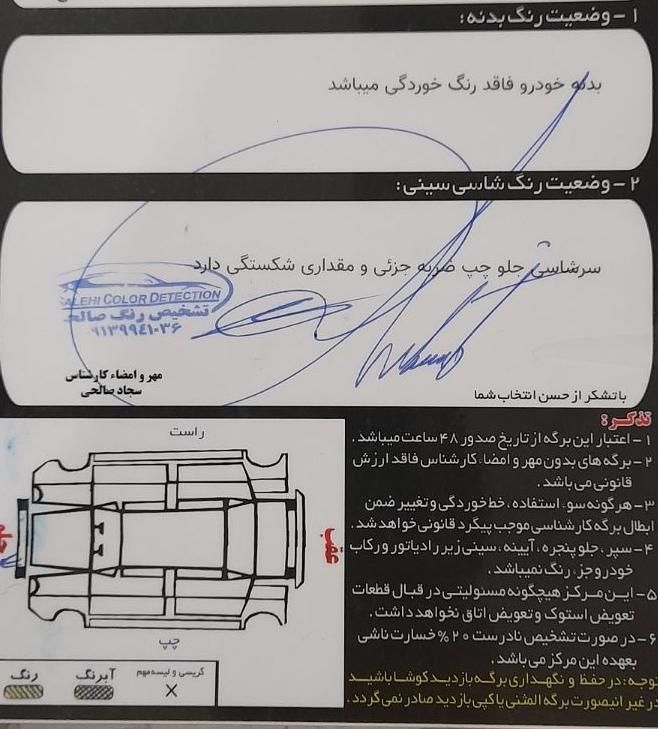 ۱ - وضعیت رنگ بدنه:
بدنه خودرو فاقد رنگ خوردگی میباشد
۲ - وضعیت رنگ شاسی سینی:
سرشاسی جلو چپ ضربه جزئی و مقداری شکستگی دارد
SALEHI COLOR DETECTION
تشخیص رنگ صالحی
۰۹۱۳۹۹۴۱۰۳۶
مهر و امضاء کارشناس
سجاد صالحی
با تشکر از حسن انتخاب شما
تذکر:
۱- اعتبار این برگه از تاریخ صدور ۴۸ ساعت میباشد.
۲- برگه های بدون مهر و امضاء کارشناس فاقد ارزش
قانونی می باشد.
۳- هرگونه سوء استفاده، خط خوردگی و تغییر ضمن
ابطال برگه کارشناسی موجب پیگرد قانونی خواهد شد.
۴- سپر، جلو پنجره، آیینه، سینی زیر رادیاتور و رکاب
خودرو جزء رنگ نمیباشد.
۵- این مرکز هیچگونه مسئولیتی در قبال قطعات
تعویض استوک و تعویض اتاق نخواهد داشت.
۶- در صورت تشخیص نادرست ۲۰% خسارت ناشی
بعهده این مرکز می باشد.
توجه: در حفظ و نگهداری برگه بازدید کوشا باشید
در غیر اینصورت برگه المثنی یا کپی بازدید صادر نمی گردد.
راست
عقب
جلو
چپ
گریسی و لیسه مهم
X
آبرنگ
رنگ